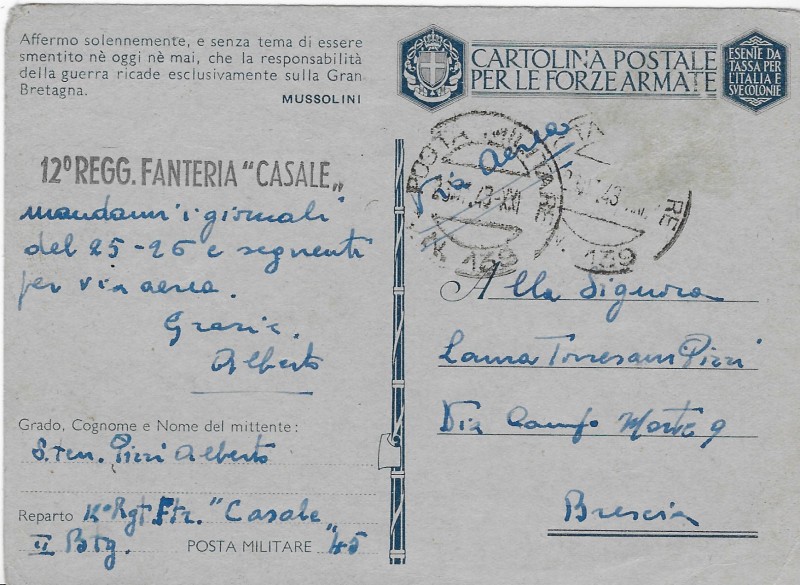 Affermo solennemente, e senza tema di essere
smentito nè oggi nè mai, che la responsabilità
della guerra ricade esclusivamente sulla Gran
Bretagna.
MUSSOLINI
CARTOLINA POSTALE
PER LE FORZE ARMATE
ESENTE DA
TASSA PER
L'ITALIA E
SVE COLONIE
12º REGG. FANTERIA "CASALE„
POSTA MILITARE
43-XXI
N. 139
43
RE
139
Via Aerea
mandami i giornali
del 25-26 e seguenti
per via aerea.
Grazie.
Alberto
Alla Signora
Laura Torresani Pizzi
Via Campo Marte 9
Brescia
Grado, Cognome e Nome del mittente:
S. Ten. Pizzi Alberto
Reparto Rgt Ftr. "Casale„
II Btg. POSTA MILITARE 45